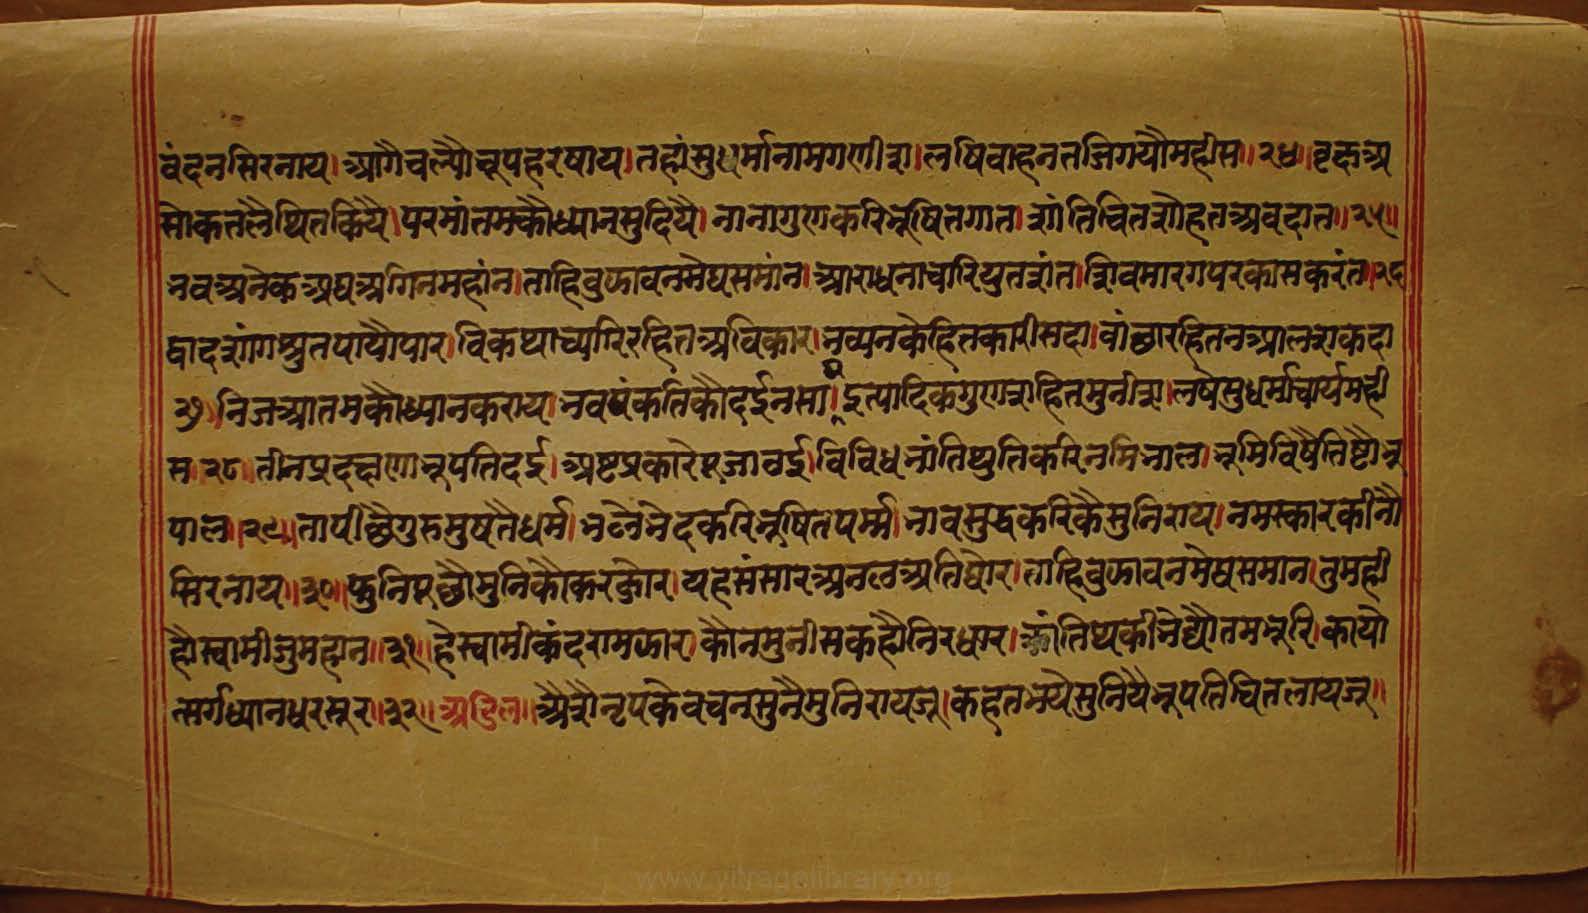 वंदनसिरनाय।आगैचल्यौनृपहरषाय।तहांसुधर्मानामगणीश।लषिवाहनतजिगयौमहीस॥२४॥वृक्षअ
सोकतलैथितकियै।परमांतमकौध्यानसुदियै।नानागुणकरिभूषितगात।शांतिचितशौहतअवदात॥२५॥
भवअनेकअघअगिनमहांन।ताहिवुझावनमेघसमांन।आराधनाचारियुतशंत।शिवमारगपरकासकरंत।२६
द्वादशांगश्रुतपायौपार।विकथाच्यारिरहितअविकार।भव्यनकेहितकारीसदा।वांछारहितनआलशकदा
२७।निजआतमकौध्यानकराय।भवपंकतिकौदईनसाय।इत्यादिकगुणशहितमुनीश।लषेसुधर्माचार्यमही
स।२८।तीनप्रदक्षणानृपतिदई।अष्टप्रकारेपूजावई।विविधभांतिथुतिकरिनमिभाल।भूमिविषैतिष्टौभू
पाल।२९।तापीछैगुरुमुषतैधर्म।भेदकरिभूषितपर्म्म।भावसुद्धकरिकैमुनिराय।नमस्कारकीनौ
सिरनाय॥३०॥फुनिपूछौमुनिकौकरजोर।यहसंसारअनलअतिघोर।ताहिवुझावनमेघसमान।तुमही
हौस्वामीजुमहान॥३१॥हैस्वामीकंदरामझार।कौनमुनीसकहौनिरधार।क्रांतिथकीभेद्यौतमभूरि।कायो
त्सर्गध्यानधरसूर॥३२॥अडिल॥अैशैनृपकेवचनसुनैमुनिरायजू।कहतभयेसुनियैनृपतिचितलायजू॥
www.vitragelibrary.org